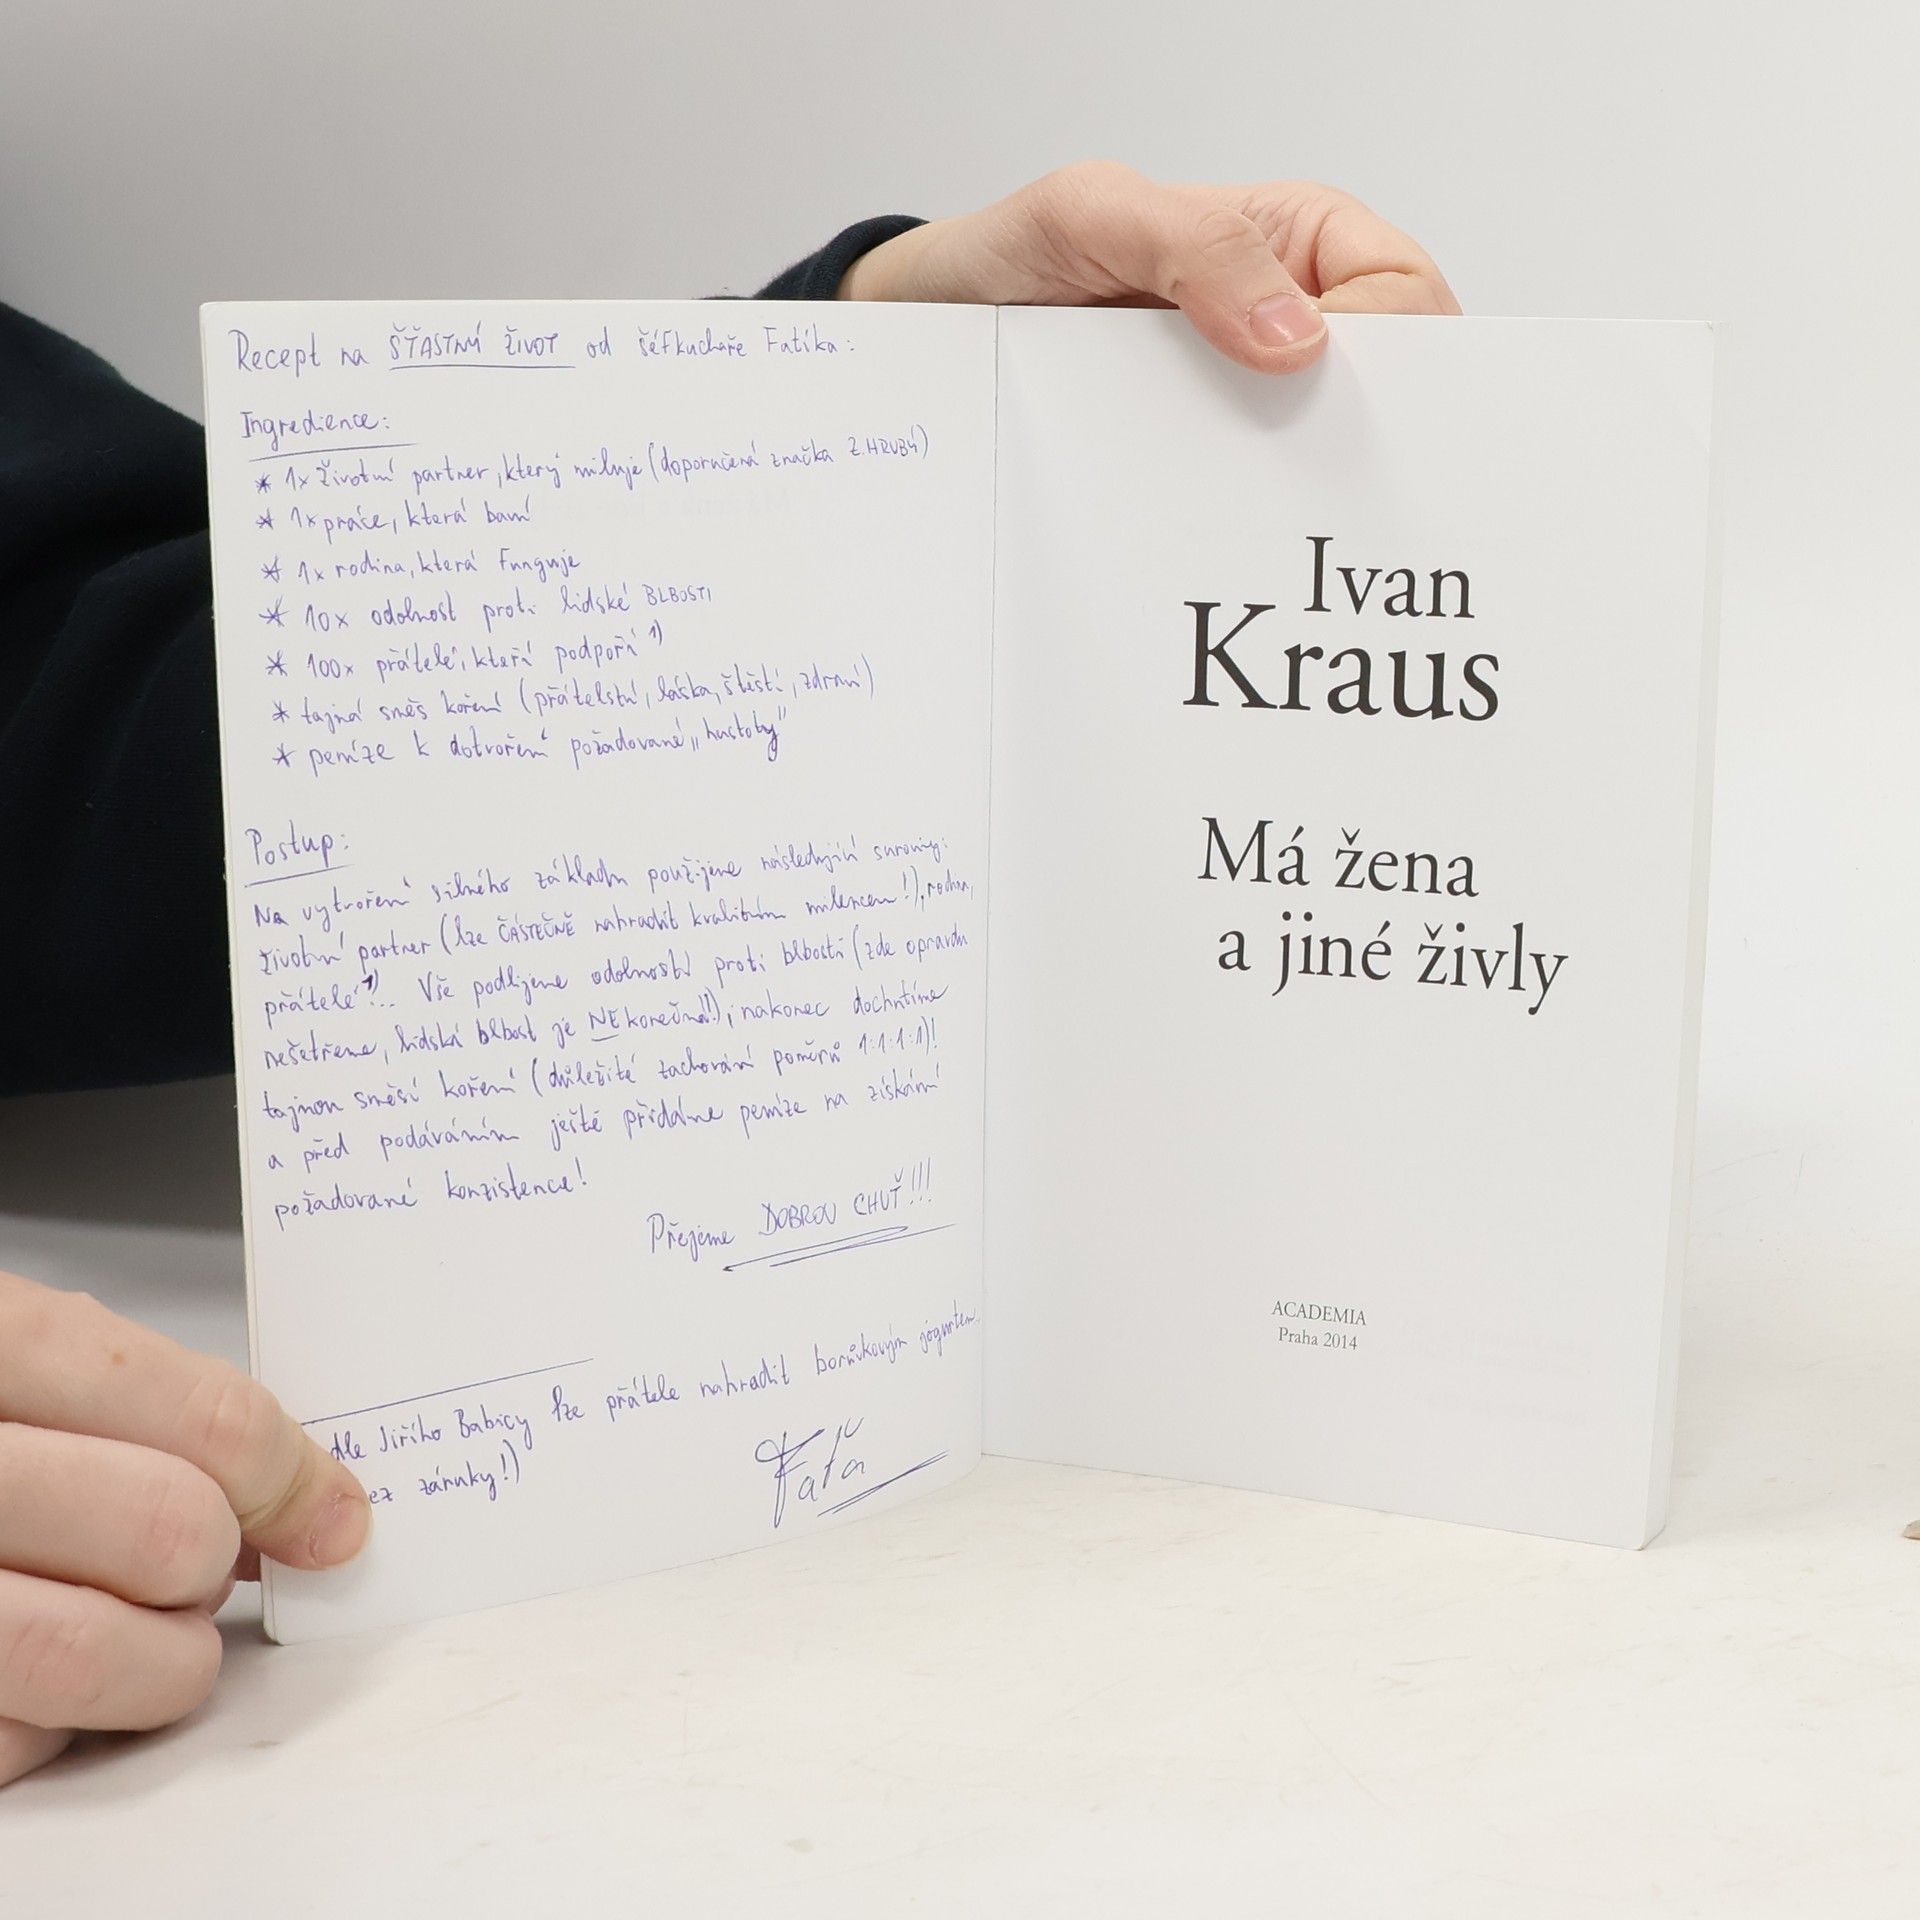 Recept na ŠŤASTNÝ ŽIVOT od šéfkuchaře Fatíka:
Ingredience:
* 1x životní partner, který miluje (doporučená značka Z. HRUBÝ)
* 1x práce, která baví
* 1x rodina, která funguje
* 10x odolnost proti lidské BLBOSTI
* 100x přátelé, kteří podpoří 1)
* tajná směs koření (přátelství, láska, štěstí, zdraví)
* peníze k dotvoření požadované „hustoty"
Postup:
Na vytvoření silného základu použijeme následující suroviny:
životní partner (lze ČÁSTEČNĚ nahradit kvalitním milencem!), rodina,
přátelé 1)!... Vše podlijeme odolností proti blbosti (zde opravdu
nešetřeme, lidská blbost je NEkonečná!!), nakonec dochutíme
tajnou směsí koření (důležité zachování poměrů 1:1:1:1)!
a před podáváním ještě přidáme peníze na získání
požadované konzistence!
Přejeme DOBROU CHUŤ!!!
dle Jiřího Babicy lze přátele nahradit borůvkovým jogurtem
ez záruky!)
Faťa
Ivan
Kraus
Má žena
a jiné živly
ACADEMIA
Praha 2014